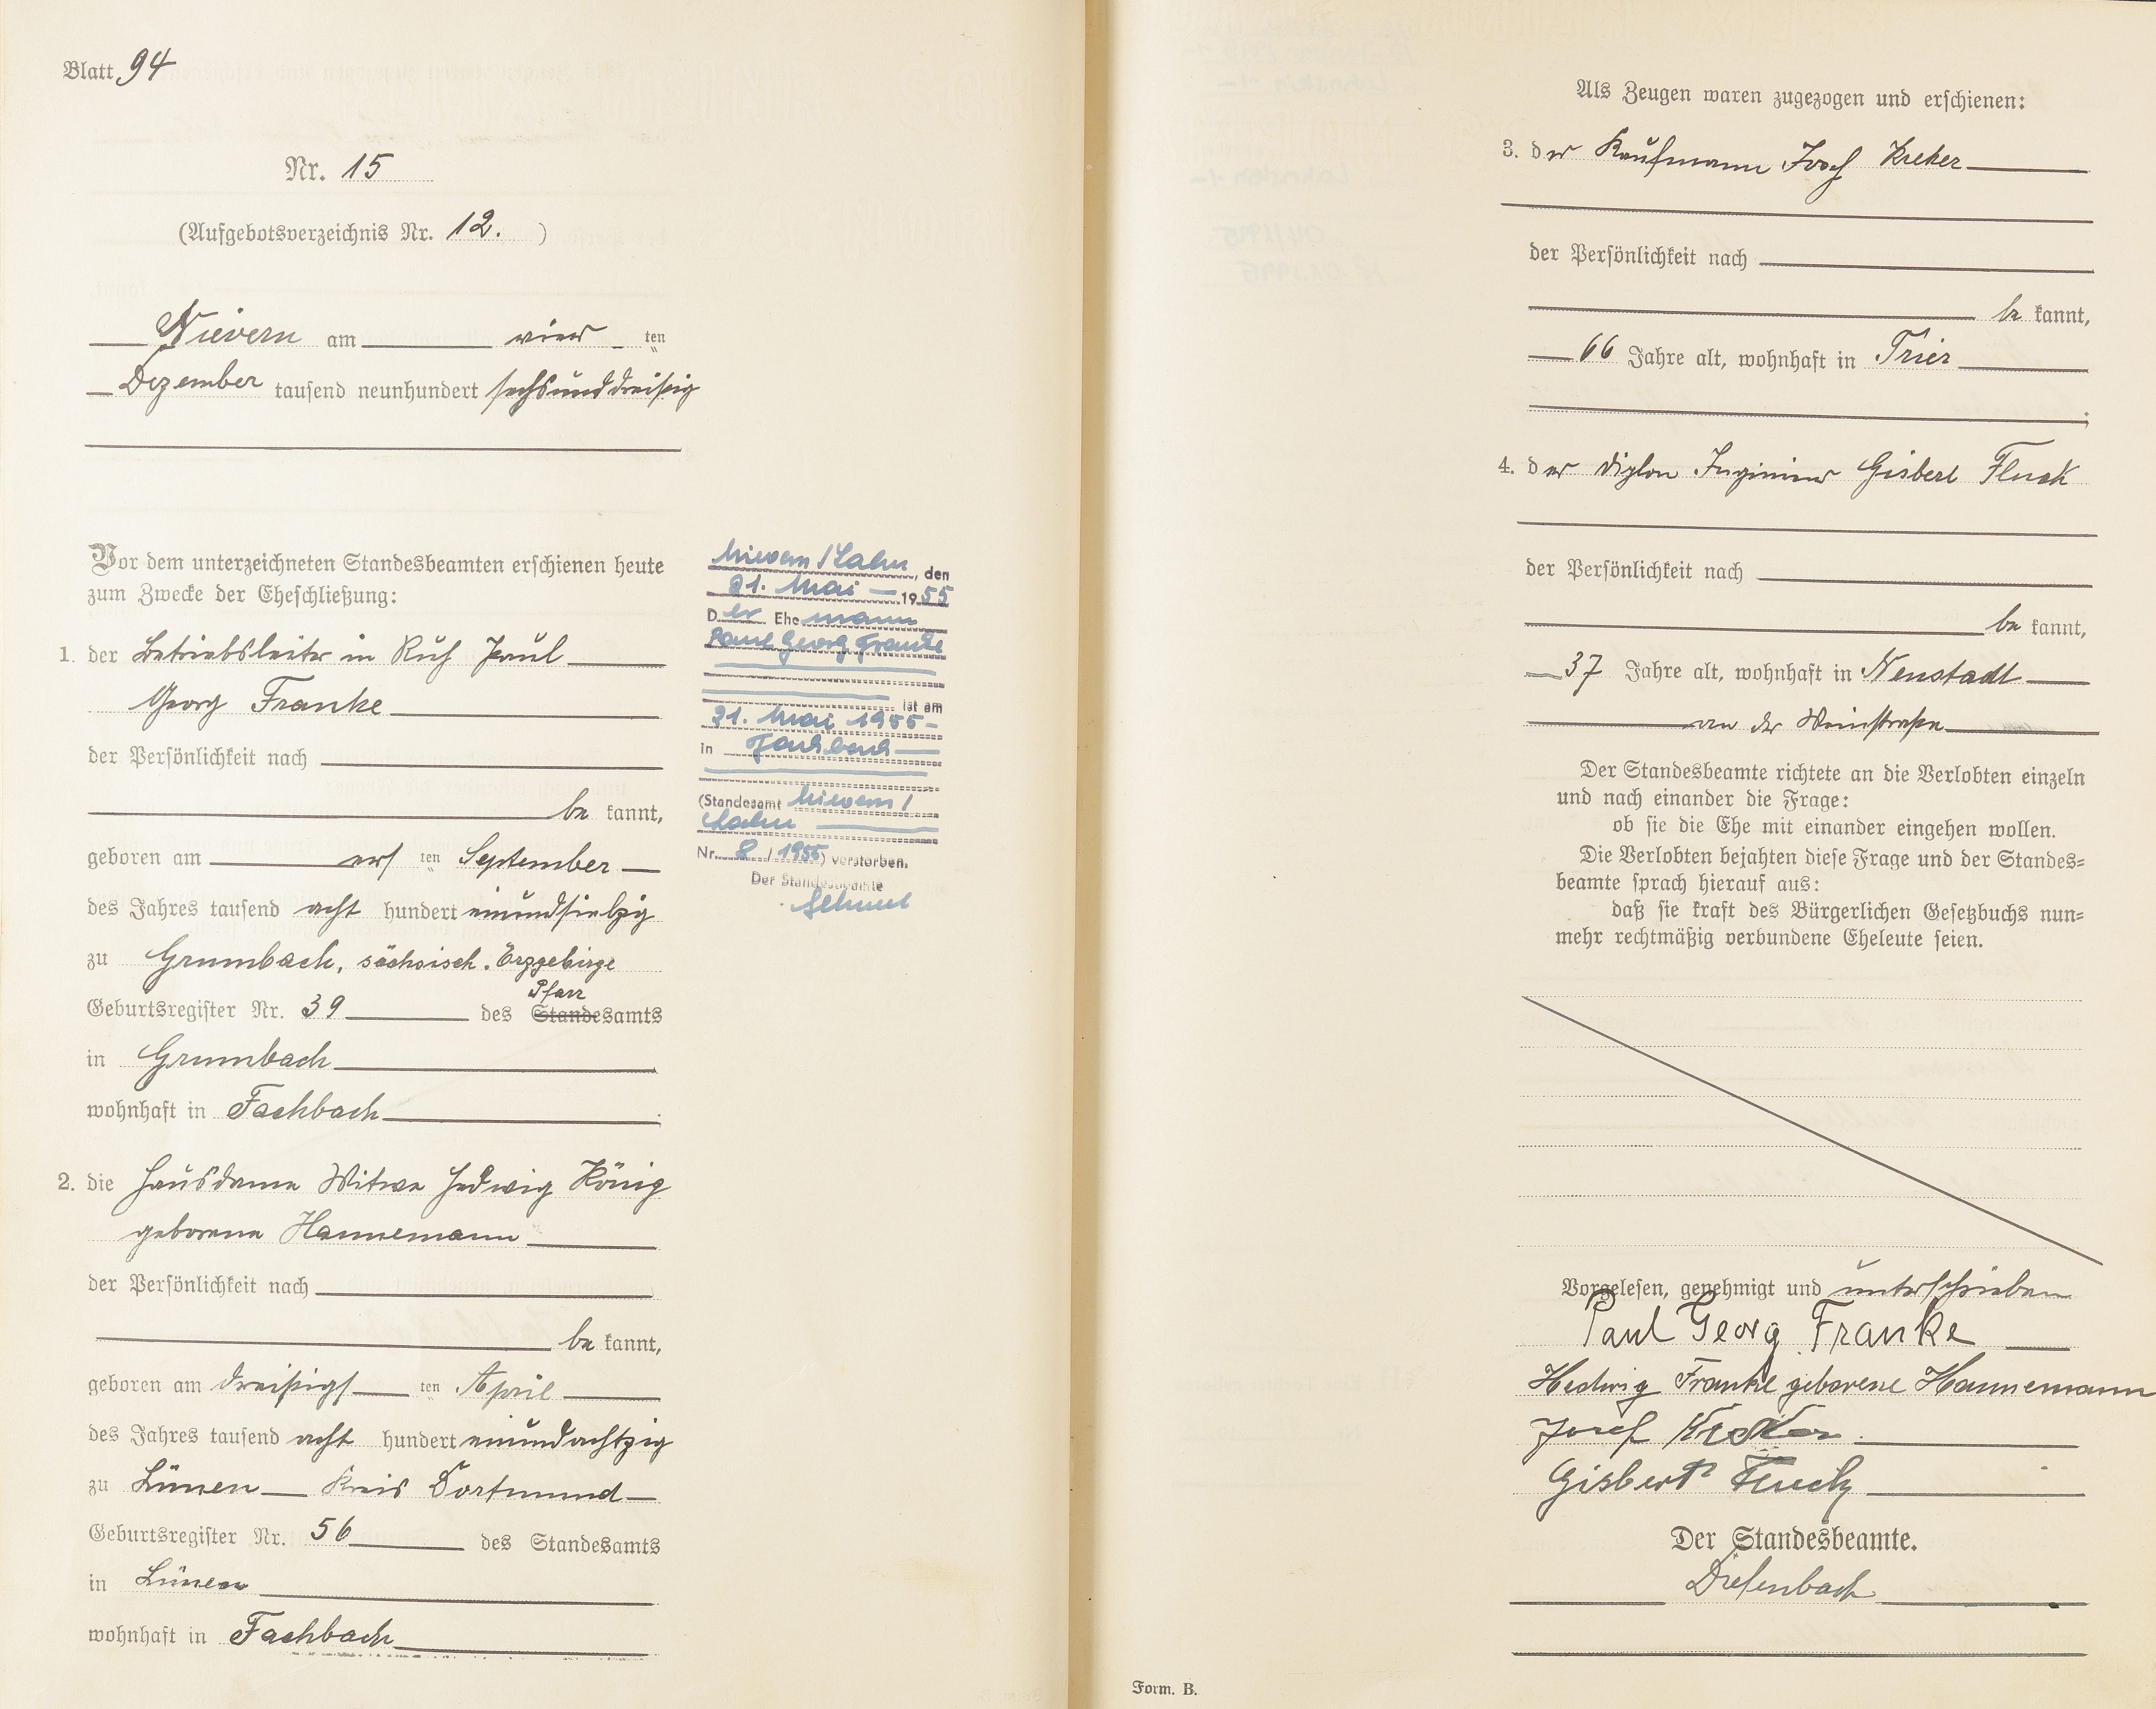 Blatt 94
Nr. 15
(Aufgebotsverzeichnis Nr. 12. )
Nievern am vier ten
Dezember tausend neunhundert sechsunddreißig
Vor dem unterzeichneten Standesbeamten erschienen heute
zum Zwecke der Eheschließung:
1. der Betriebsleiter in Ruh Paul
Georg Franke
der Persönlichkeit nach
be kannt,
geboren am erst ten September
des Jahres tausend acht hundert einundsiebzig
zu Grumbach, sächsisch. Erzgebirge
Pfarr
Geburtsregister Nr. 39 des Standesamts
in Grumbach
wohnhaft in Fachbach
2. die Hausdame Witwe Hedwig König
geborene Hannemann
der Persönlichkeit nach
be kannt,
geboren am dreißigst ten April
des Jahres tausend acht hundert einundachtzig
zu Lünen Kreis Dortmund
Geburtsregister Nr. 56 des Standesamts
in Lünen
wohnhaft in Fachbach
Nievern/Lahn, den
21. Mai 1955
Der Ehemann
Paul Georg Franke
ist am
21. Mai 1955
in Fachbach
(Standesamt Nievern/
Lahn
Nr. 8 / 1955) verstorben.
Der Standesbeamte
Als Zeugen waren zugezogen und erschienen:
3. der Kaufmann Josef
der Persönlichkeit nach
be kannt,
66 Jahre alt, wohnhaft in Trier
;
4. der Diplom Ingenieur Gisbert Fluck
der Persönlichkeit nach
be kannt,
37 Jahre alt, wohnhaft in Neustadt
an der Weinstraße
Der Standesbeamte richtete an die Verlobten einzeln
und nach einander die Frage:
ob sie die Ehe mit einander eingehen wollen.
Die Verlobten bejahten diese Frage und der Standes=
beamte sprach hierauf aus:
daß sie kraft des Bürgerlichen Gesetzbuchs nun=
mehr rechtmäßig verbundene Eheleute seien.
Vorgelesen, genehmigt und unterschrieben
Paul Georg Franke
Hedwig Franke geborene Hannemann
Josef
Gisbert Fluck
Der Standesbeamte.
Diefenbach
Form. B.